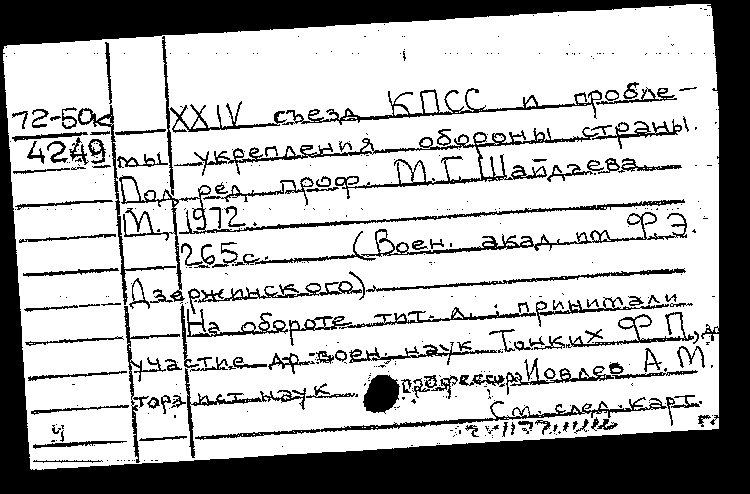 72-50к XXIV съезд КПСС и пробле-
4249 мы укрепления обороны страны.
Под ред. проф. М.Г. Шайдаева.
М., 1972.
265с. (Воен. акад. им Ф.Э.
Дзержинского).
На обороте тит. л.: принимали
участие др воен. наук Тонких Ф П., до
тора ист наук профессора Иовлев А.М.
ч См. след. карт.